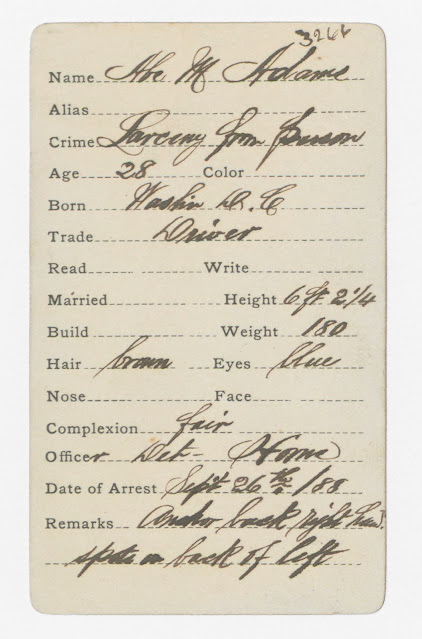 3264
Name Abe M Adams
Alias
Crime Larceny from person
Age 28 Color
Born Washn D.C
Trade Driver
Read Write
Married Height 6 ft 2 1/4
Build Weight 180
Hair brown Eyes blue
Nose Face
Complexion fair
Officer Det Horne
Date of Arrest Sept 26th /88
Remarks Anchor back right hand
spots on back of left